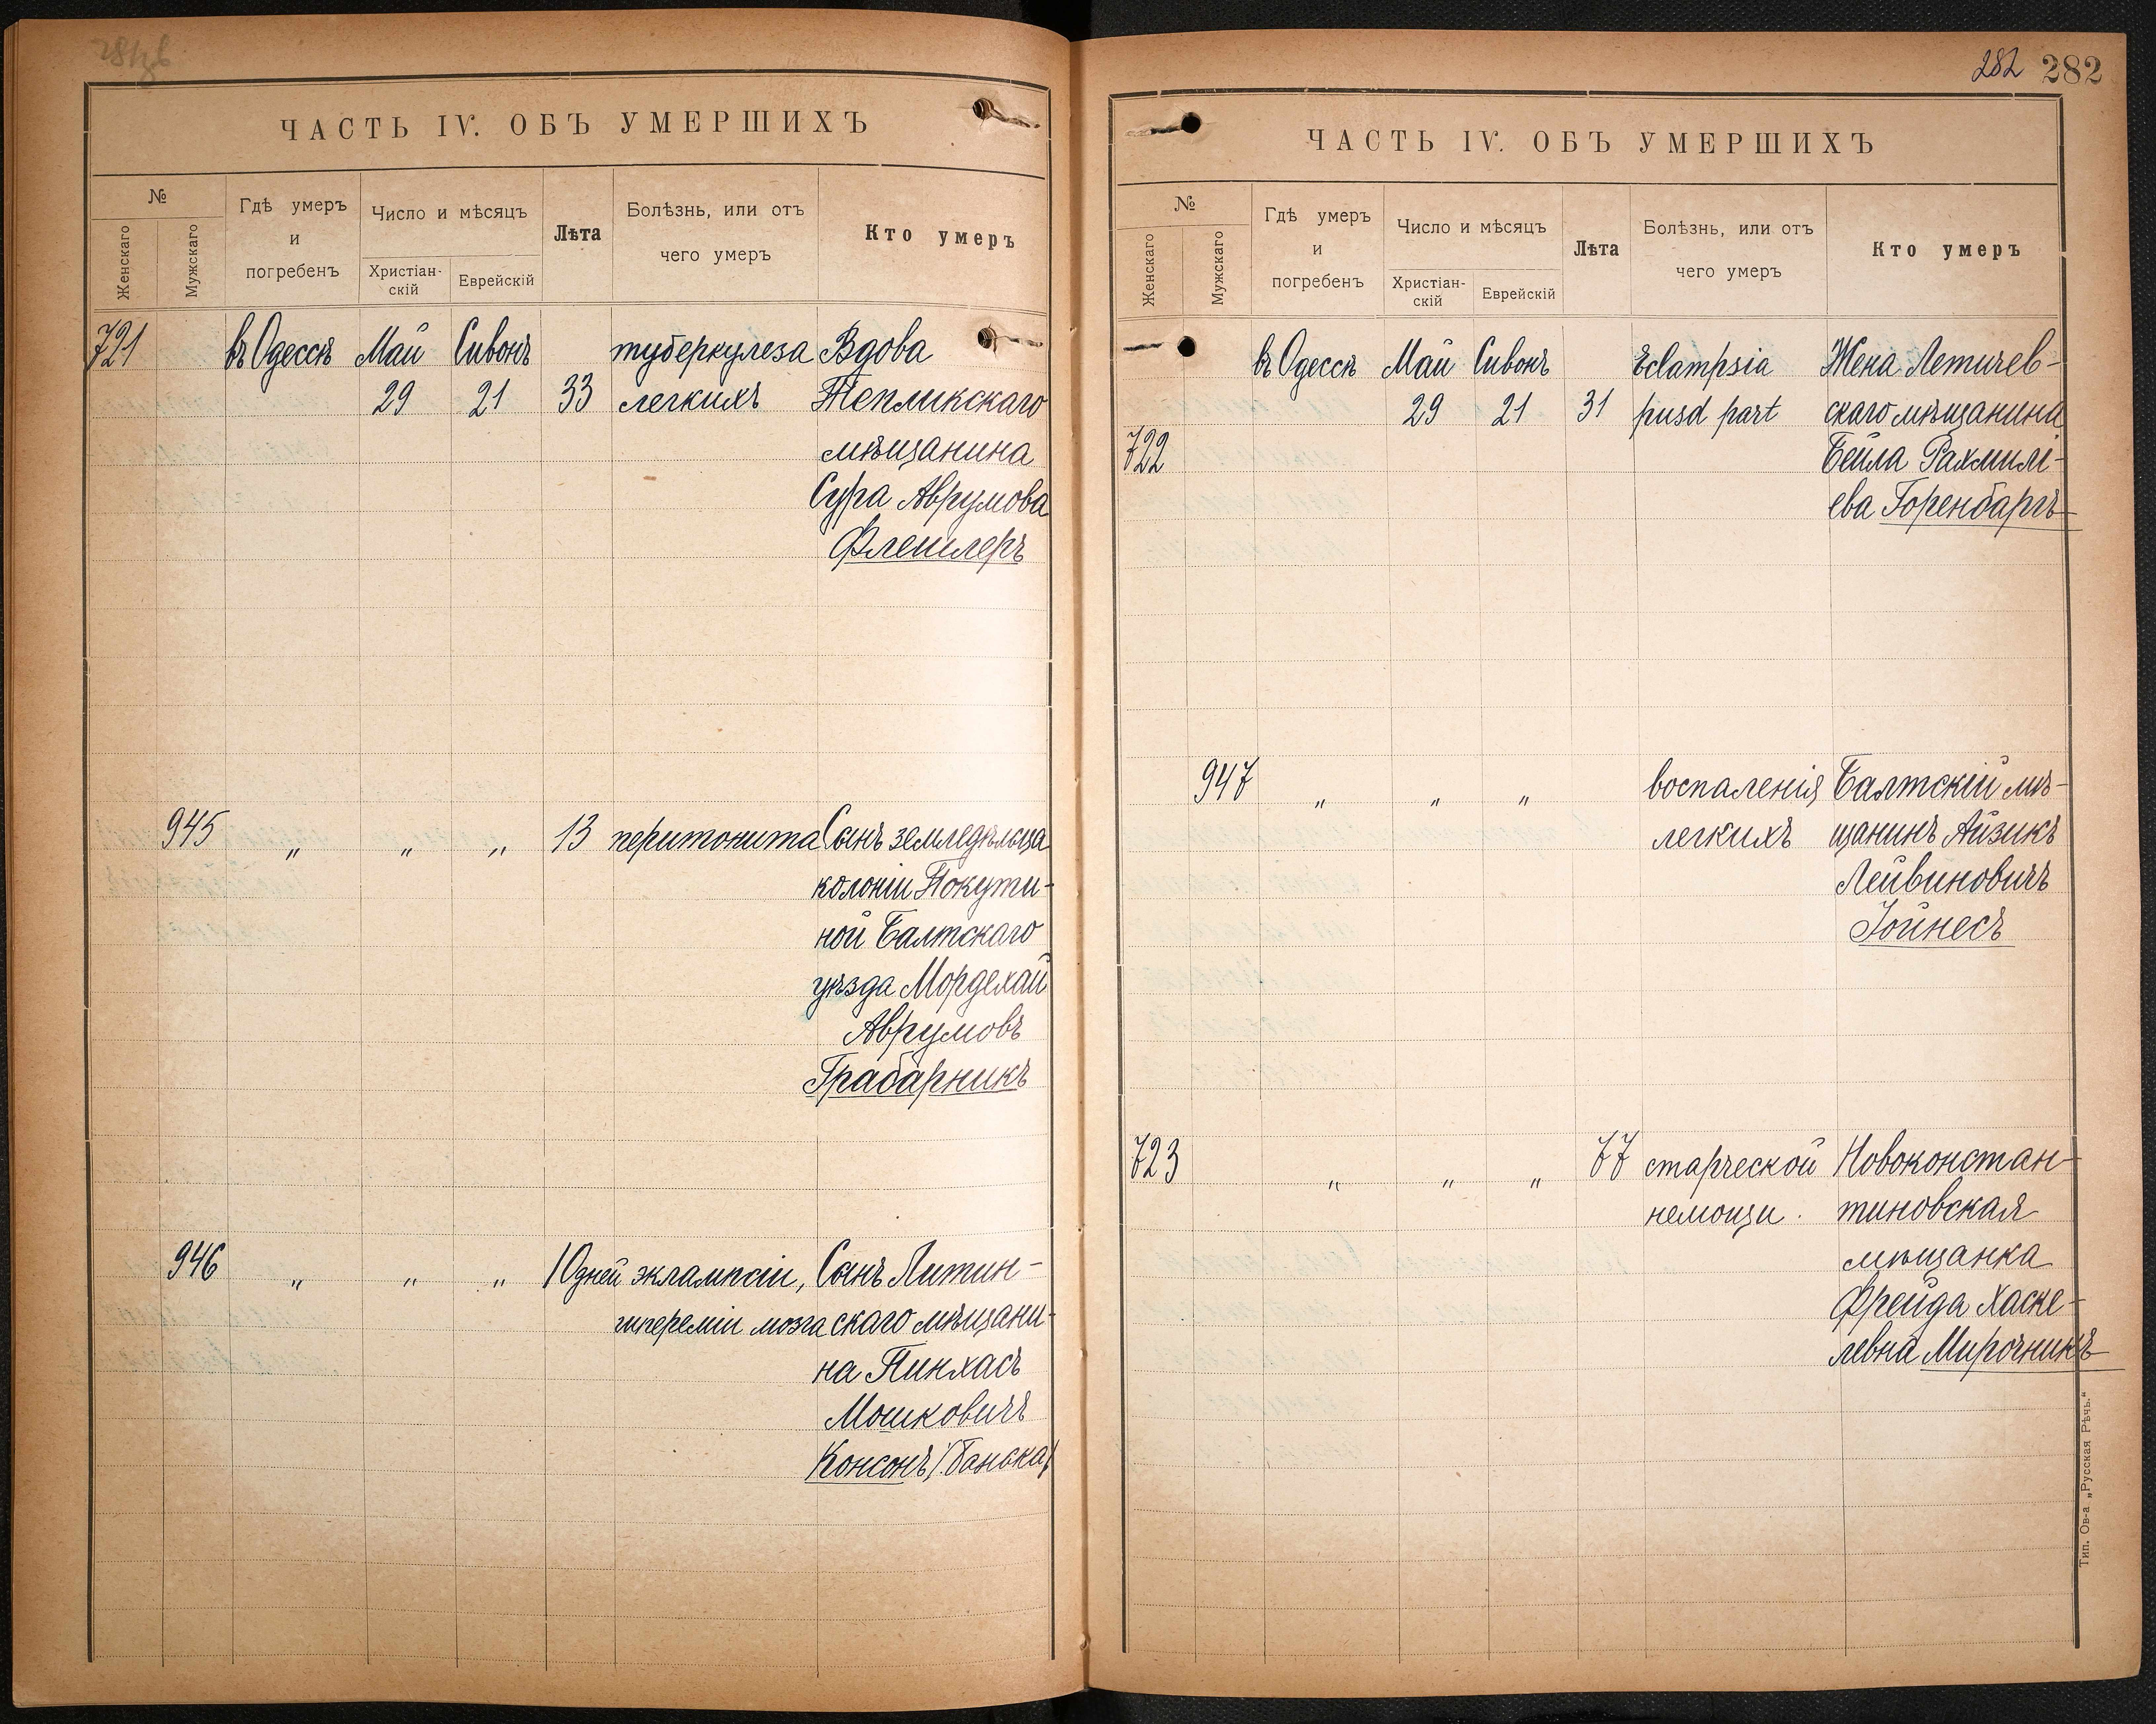 ЧАСТЬ IV. ОБЪ УМЕРШИХЪ
№
Женскаго
Мужскаго
Гдѣ умеръ
и
погребенъ
Число и мѣсяцъ
Христіан-
скій
Еврейскій
Лѣта
Болѣзнь, или отъ
чего умеръ
Кто умеръ
721 въ Одессѣ Май Сивонъ туберкулеза Вдова
29 21 33 легкихъ Тепликскаго
мѣщанина
Сура Аврумова
Флешлеръ
945 „ „ „ 13 перитонита Сынъ земледѣльца
колоніи Покути-
ной Балтскаго
уѣзда Мордехай
Аврумовъ
Грабарникъ
946 „ „ „ 10 дней эклампсіи, Сынъ Литин-
гипереміи мозга скаго мѣщани-
на Пинхасъ
Мошковичъ
Консонъ /:Банька/
282 282
ЧАСТЬ IV. ОБЪ УМЕРШИХЪ
№
Женскаго
Мужскаго
Гдѣ умеръ
и
погребенъ
Число и мѣсяцъ
Христіан-
скій
Еврейскій
Лѣта
Болѣзнь, или отъ
чего умеръ
Кто умеръ
въ Одессѣ Май Сивонъ Eclampsia Жена Летичев-
29 21 31 pusd part скаго мѣщанина
722 Бейла Рахмилі-
ева Горенбаргъ
947 „ „ „ воспаленія Балтскій мѣ-
легкихъ щанинъ Айзикъ
Лейвиновичъ
Іойнесъ
723 „ „ „ 77 старческой Новоконстан-
немощи. тиновская
мѣщанка
Фрейда Хаске-
левна Мирочникъ
Тип. Ов-а „Русская Рѣчь.“